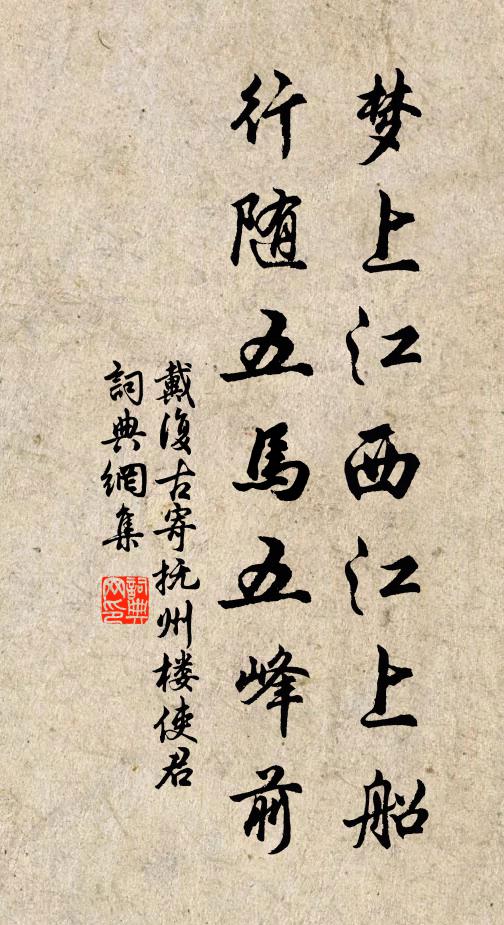 梦上江西江上船
行随五馬五峰前
戴復古寄抚州楼使君
詞典網集
詞典
网印